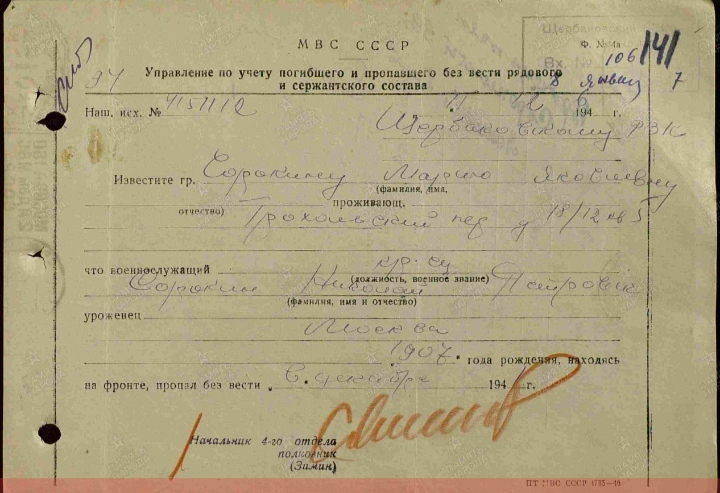 Щербаковский
МВС СССР
Ф. № 4а
Вх. № 106 /41
94
8 января 7
Управление по учету погибшего и пропавшего без вести рядового
и сержантского состава
Наш. исх. № 194 г.
Щербаковскому РВК
Известите гр. Сорокину Марию Яковлевну
(фамилия, имя,
проживающ.
отчество) пер д 18/12 кв 5
что военнослужащий кр-ец
(должность, военное звание)
Сорокин Николай Петрович
(фамилия, имя и отчество)
уроженец
Москва
1907. года рождения, находясь
на фронте, пропал без вести в декабре 1941 г.
Начальник 4-го отдела
полковник
(Зимин)